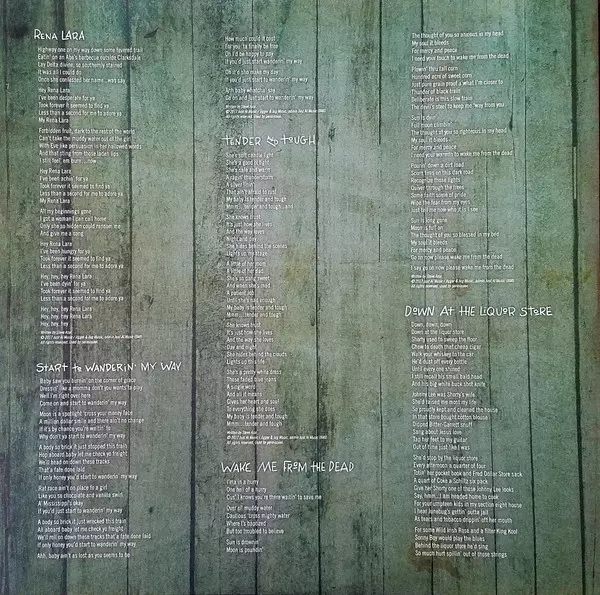 RENA LARA
Highway one on my way down some favored trail
Eatin' on an Abe's barbecue outside Clarksdale
Ley Delta divine, so southernly stained
It was all I could do
Once she confessed her name...was say
Hey Rena Lara
I've been desperate for ya
Took forever it seemed to find ya
Less than a second for me to adore ya
My Rena Lara
Forbidden fruit, dark to the rest of the world
Can't take the muddy water out of the girl
With Eve like persuasion in her hallowed words
And that sting from those laden lips
I still feel, em burn...now
Hey Rena Lara
I've been achin' for ya
Took forever it seemed to find ya
Less than a second for me to adore ya
My Rena Lara
At my beginnings gone
I got a woman I can call home
Only she so hidden could remove me
And give me a song
Hey Rena Lara
I've been hungry for ya
Took forever it seemed to find ya
Less than a second for me to adore ya
Hey, hey, hey Rena Lara
I've been dyin' for ya
Took forever it seemed to find ya
Less than a second for me to adore ya
Hey, hey, hey Rena Lara
Hey, hey, hey Rena Lara
Hey, hey, hey
Written by Steve Azar
© 2017 Just Al Music / Eggie & Jug Music, admin Just Al Music (BMI)
All rights reserved. Used by permission.
START to WANDERIN' MY WAY
Baby saw you burnin' on the corner of grace
Dressin' like a momma don't you wants to play
Well I'm right over here
Come on and start to wanderin' my way
Moon is a spotlight 'cross your money face
A million dollar smile and there ain't no change
If it's by chance you're waitin' to
Why don't ya start to wanderin' my way
A body so brick it just stopped this train
Hop aboard baby let me check yo freight
We'll head on down these tracks
That's fate done laid
If only honey you'd start to wanderin' my way
Rat race ain't no place fo a girl
Like you so chocolate and vanilla swirl
Al Mississippi's okay
If you'd just start to wanderin' my way
A body so brick it just wrecked this train
All aboard baby let me check yo freight
We'll roll on down these tracks that's fate done laid
If only honey you'd start to wanderin' my way
Ahh, baby ain't as lost as you seems to be
How much could it cost
For you to finally be free
Oh it'd make my day
If you'd just start wanderin' my way
Oh it'd sho make my day
If you'd just start to wanderin' my way
Ahh baby whatcha' say
Go on and just start to wanderin' my way
Written by Steve Azar
© 2017 Just Al Music / Eggie & Jug Music, admin Just Al Music (BMI)
All rights reserved. Used by permission.
TENDER and TOUGH
She's soft candle light
She's a gang of fight
She's safe and warm
A ragin' thunderstorm
A silver finish
That ain't afraid to rust
My baby is tender and tough
Mmm...tender and tough...and
She knows trust
It's just how she lives
And the way loves
Night and day
She hides behind the scenes
Lights up my stage
A little of her mom
A little of her dad
She's so dang sweet
And when she's mad
A patient job
Until she's had enough
My baby is tender and tough
Mmm...tender and tough
She knows trust
It's just how she lives
And the way she loves
Day and night
She hides behind the clouds
Lights up this life
She's a pretty white dress
Those faded blue jeans
A single word
And all it means
Gives her heart and soul
To everything she does
My baby is tender and tough
Mmm...tender and tough
Written by Steve Azar
© 2017 Just Al Music / Eggie & Jug Music, admin Just Al Music (BMI)
All rights reserved. Used by permission.
WAKE ME FROM THE DEAD
I'ma in a hurry
One hell of a hurry
Cuz' I knows you re there waitin' to save me
Over oll muddy water
Cautious 'cross mighty water
Where I's baptized
But too troubled to believe
Sun is drownin'
Moon is poundin'
The thought of you so amorous in my head
My soul it bleeds
For mercy and peace
I need your touch to wake me from the dead
Plowin' thru tall corn
Hundred acre of sweet corn
Just pure grain proof a what I'm closer to
Thunder of black train
Deliberate is this slow train
The devil's steel to keep me way from you
Sun is dark
Full moon climbin'
The thought of you so righteous in my head
My soul it bleeds
For mercy and peace
I need your warmth to wake me from the dead
Pourin' down a dirt road
Scant tires on this dark road
Recognize those lights
Quiver through the trees
Some faith some of pride
Wipe the fear from my eyes
Just tell me now who it is I see
Sun is long gone
Moon is full an
The thought of you so blessed in my bed
My soul it bleeds
For mercy and peace
Go on now please wake me from the dead
I say go on now please wake me from the dead
Written by Steve Azar
© 2017 Just Al Music / Eggie & Jug Music, admin Just Al Music (BMI)
All rights reserved. Used by permission.
DOWN AT THE LIQUOR STORE
Down, down, down
Down at the liquor store
Shorty used to sweep the floor
Chew to death that cheap cigar
Walk your whiskey to tha car
He'd dust off every bottle
Until every one shined
Little moon his small bald head
And his big white buck shot knife
Johnny Lee was Shorty's wife
She'd raised me most my life
So proudly kept and cleaned the house
In that store bought cotton blouse
Dipped Bitter-Garrett snuff
Sang about Jesus love
Tap her feet to my guitar
Out of time just like I was
She'd stop by the liquor store
Every afternoon a quarter of four
Totin' her pocket book and Fred Dollar Store sack
A quart of Coke a Schlitz six pack
Give her Shorty one of those Johnny Lee looks
Say, hmm...I am headed home to cook
For yo umpteen kids in my section eight house
I hear Junebug's gettin' outta jail
As tears and tobacco drippin' off her mouth
For some Wild Irish Rose and a filter King Kool
Sonny Boy would play the blues
Behind the liquor store he'd sing
So much hurt spillin' out of those strings